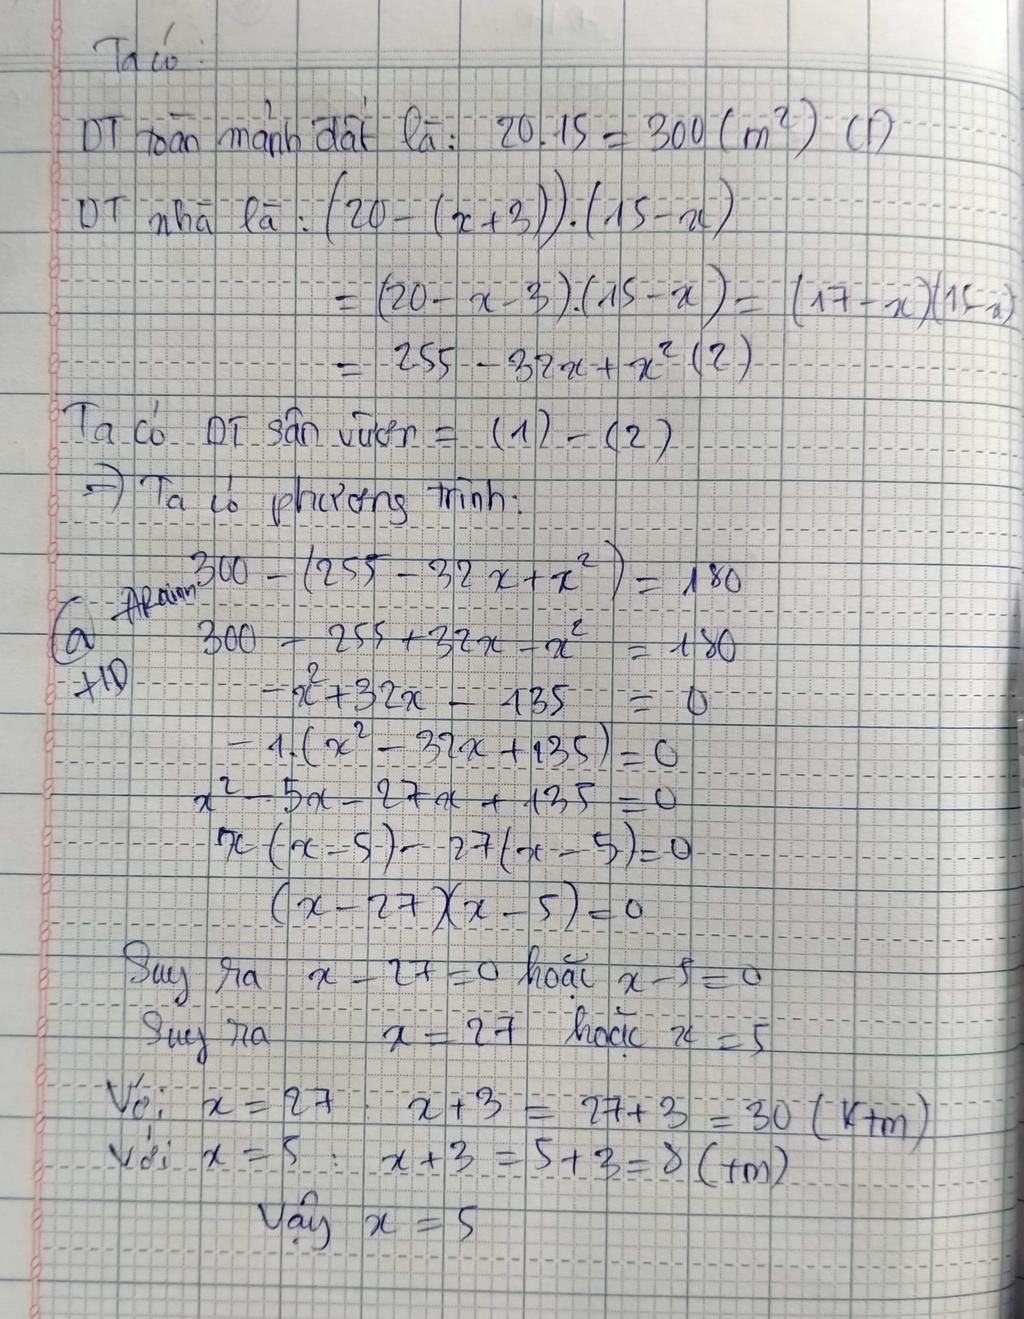 Ta có:
DT toàn mảnh đất là: 20.15 = 300 (m²) (1)
DT nhà là: (20 - (x+3)).(15-x)
= (20 - x - 3).(15 - x) = (17 - x)(15-x)
= 255 - 32x + x² (2)
Ta có DT sân vườn = (1) - (2)
=> Ta có phương trình:
300 - (255 - 32x + x²) = 180
300 - 255 + 32x - x² = 180
a
+1Đ
-x² + 32x - 135 = 0
-1.(x² - 32x + 135) = 0
x² - 5x - 27x + 135 = 0
x(x-5) - 27(x-5) = 0
(x-27)(x-5) = 0
Suy ra x - 27 = 0 hoặc x - 5 = 0
Suy ra x = 27 hoặc x = 5
Với x = 27 : x+3 = 27+3 = 30 (ktm)
Với x = 5 : x+3 = 5+3 = 8 (tm)
Vậy x = 5